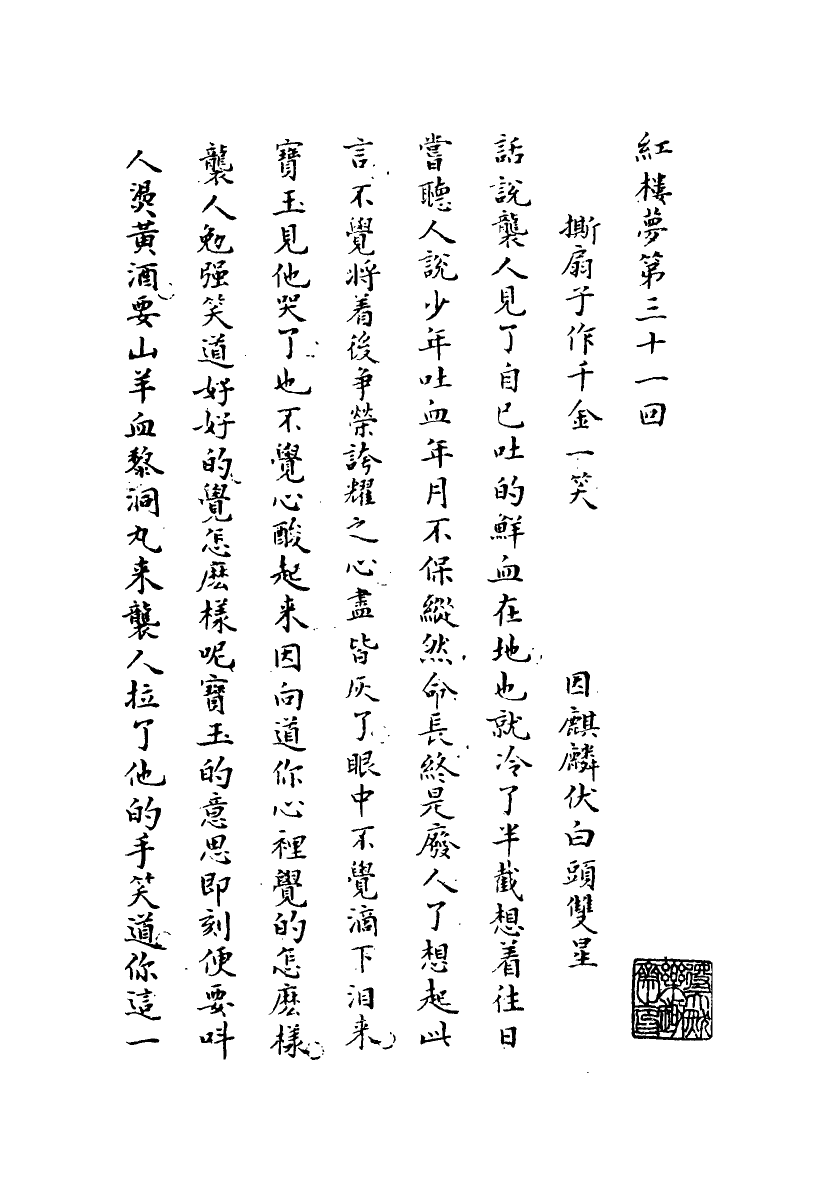 紅樓夢第三十一回
撕扇子作千金一笑 因麒麟伏白頭雙星
話說襲人見了自己吐的鮮血在地也就冷了半截想着往日
嘗聽人說少年吐血年月不保縱然命長終是廢人了想起此
言不覺將着後爭榮誇耀之心盡皆灰了眼中不覺滴下泪来
寶玉見他哭了也不覺心酸起来因向道你心裡覺的怎麽樣
襲人勉强笑道好好的覺怎麽樣呢寶玉的意思即刻便要呌
人燙黃酒要山羊血黎洞丸来襲人拉了他的手笑道你這一